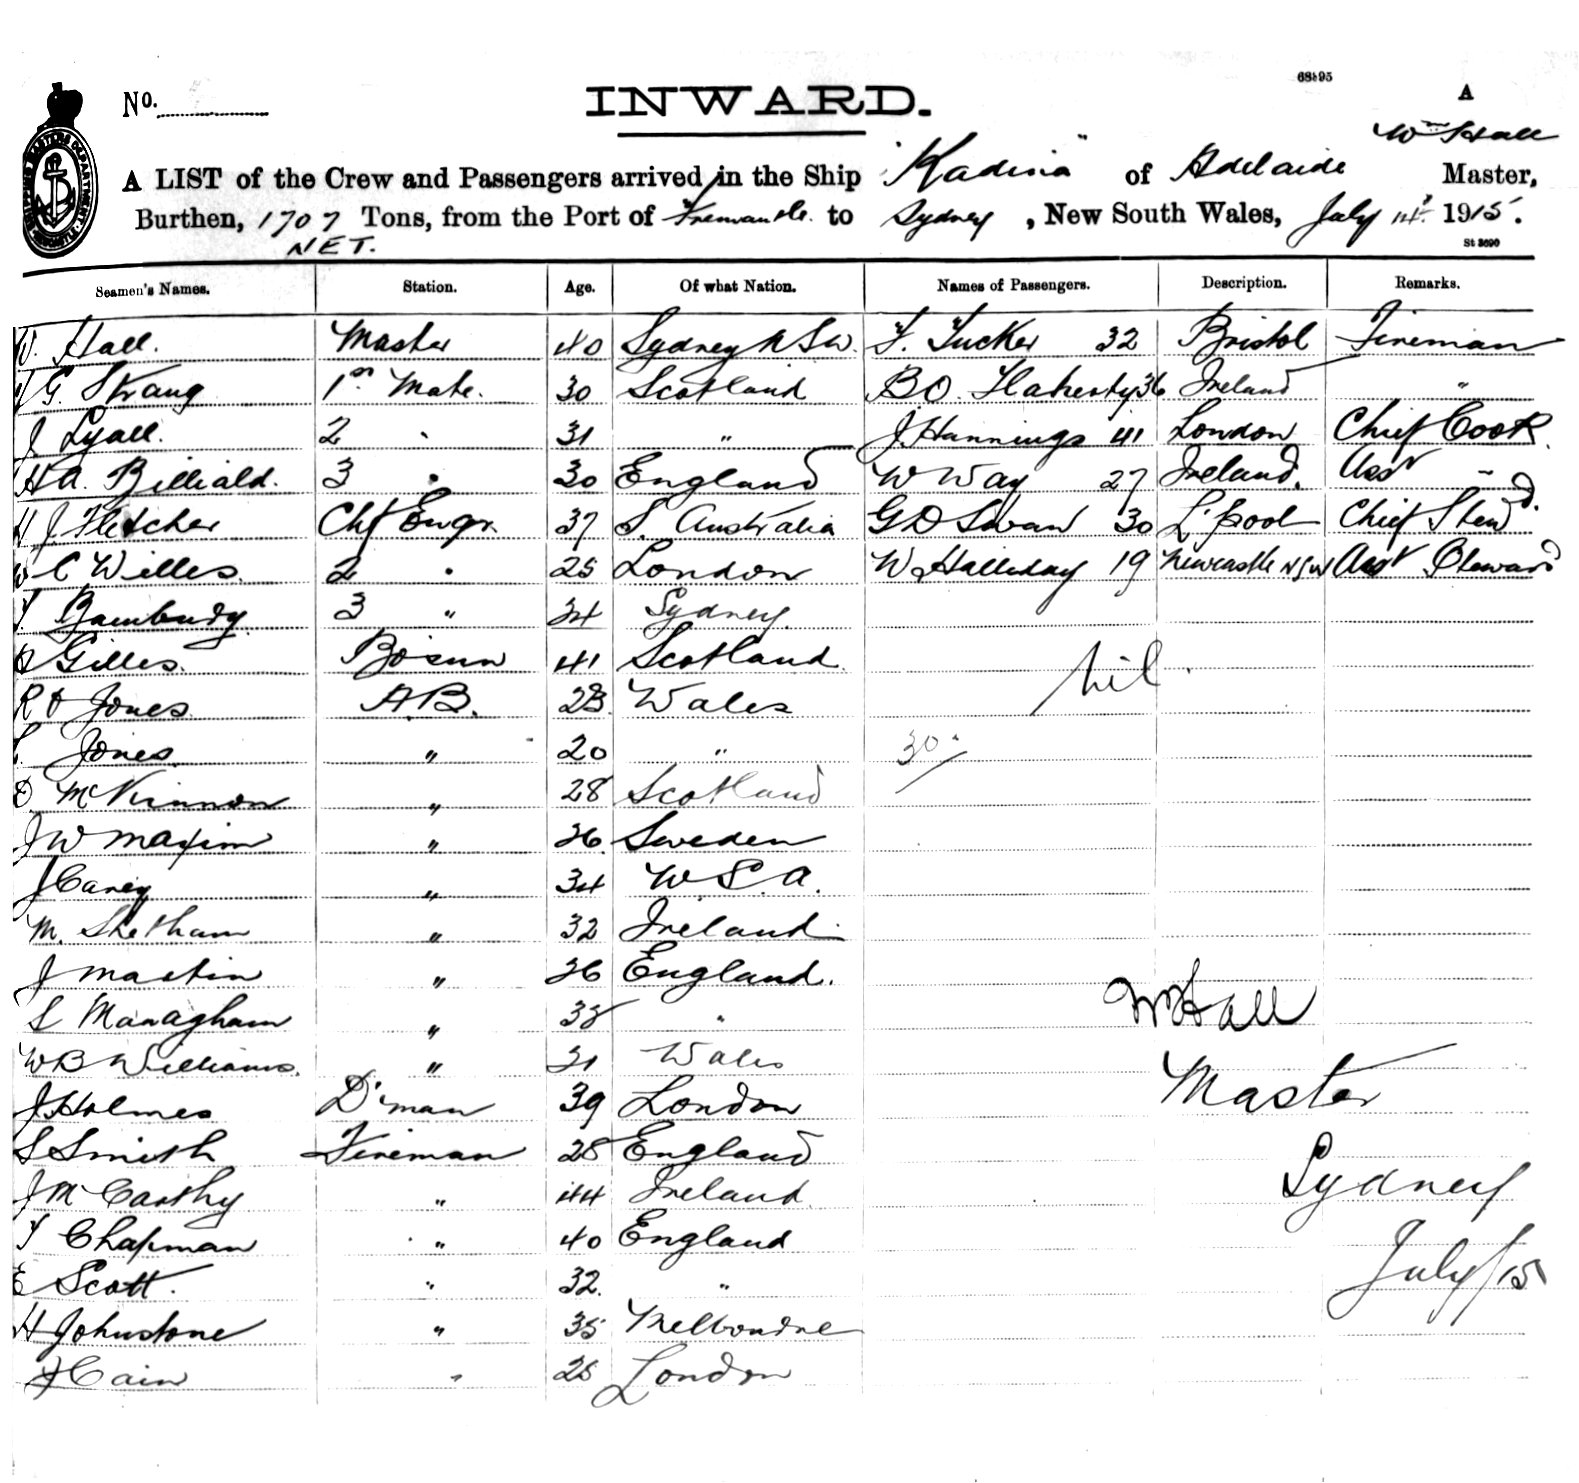 68895
No.
INWARD.
A
Wm Hall
A LIST of the Crew and Passengers arrived in the Ship "Kadina" of Adelaide Master,
Burthen, 1707 Tons, from the Port of Fremantle. to Sydney, New South Wales, July 14th 1915.
NET.
St 3690
Seamen's Names. Station. Age. Of what Nation. Names of Passengers. Description. Remarks.
W. Hall. Master 40 Sydney N S W. F. Tucker 32 Bristol Fireman
G. Strang 1st Mate. 30 Scotland B O. Flaherty 36 Ireland "
J Lyall. 2 " 31 " J. Hannings 41 London Chief Cook.
H A. Billiald. 3 " 30 England W Way 27 Ireland. Asst "
H J. Fletcher Chf Engr. 37 S. Australia G D Swan 30 L'pool Chief Stewd.
W C Willes. 2 " 25 London W Halliday 19 Newcastle NSW Asst Steward
T Bambudy. 3 " 24 Sydney.
Gilles. Bosun 41 Scotland.
nil.
R O Jones. A.B. 23 Wales
Jones. " 20 " 30
D. McKinnon " 28 Scotland
J W Maxim " 26. Sweden
J Carey " 34 U S. A.
M. Shetham " 32 Ireland.
J Mastin " 26 England.
S Managham " 38 "
Wm Hall
W B Williams. " 21 Wales
Master
J. Holmes D'man 39 London
S Smith Fireman 28 England
J McCarthy " 44 Ireland
Sydney
T Chapman " 40 England
E Scott. " 32. "
July/15
H Johnstone " 35 Melbourne
J Cain " 25 London